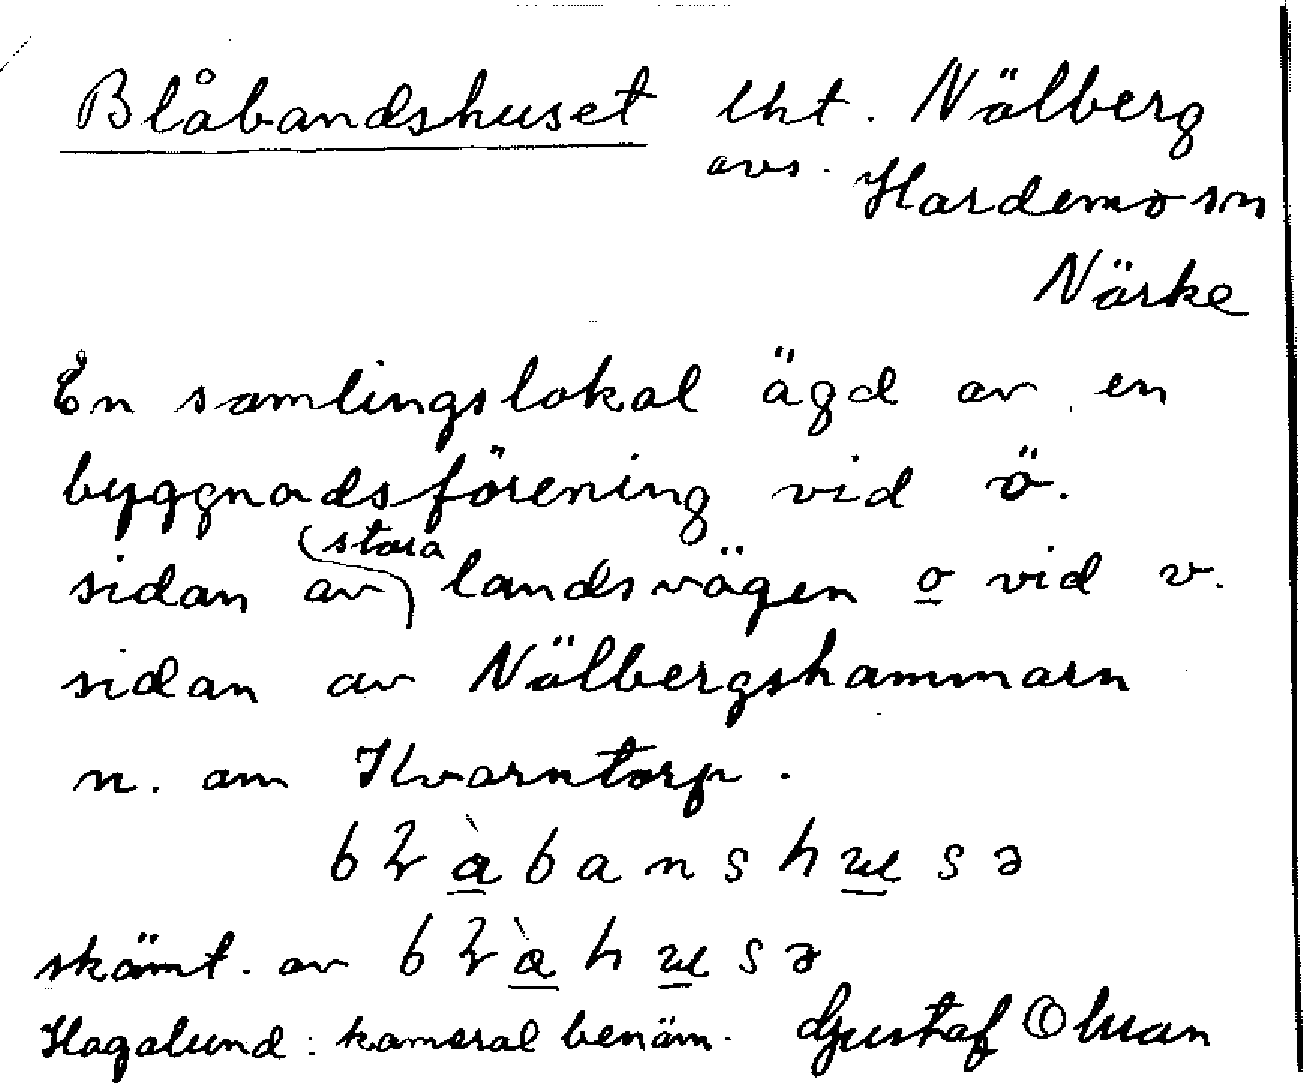 Blåbandshuset lht. Nälberg
avs. Hardemo sn
Närke
En samlingslokal ägd av en
byggnadsförening vid ö.
stora
sidan av landsvägen o vid v.
sidan av Nälbergshammarn
n. om Kvarntorp.
skämt. av
Hagalund: kameral benäm. Gustaf Olman